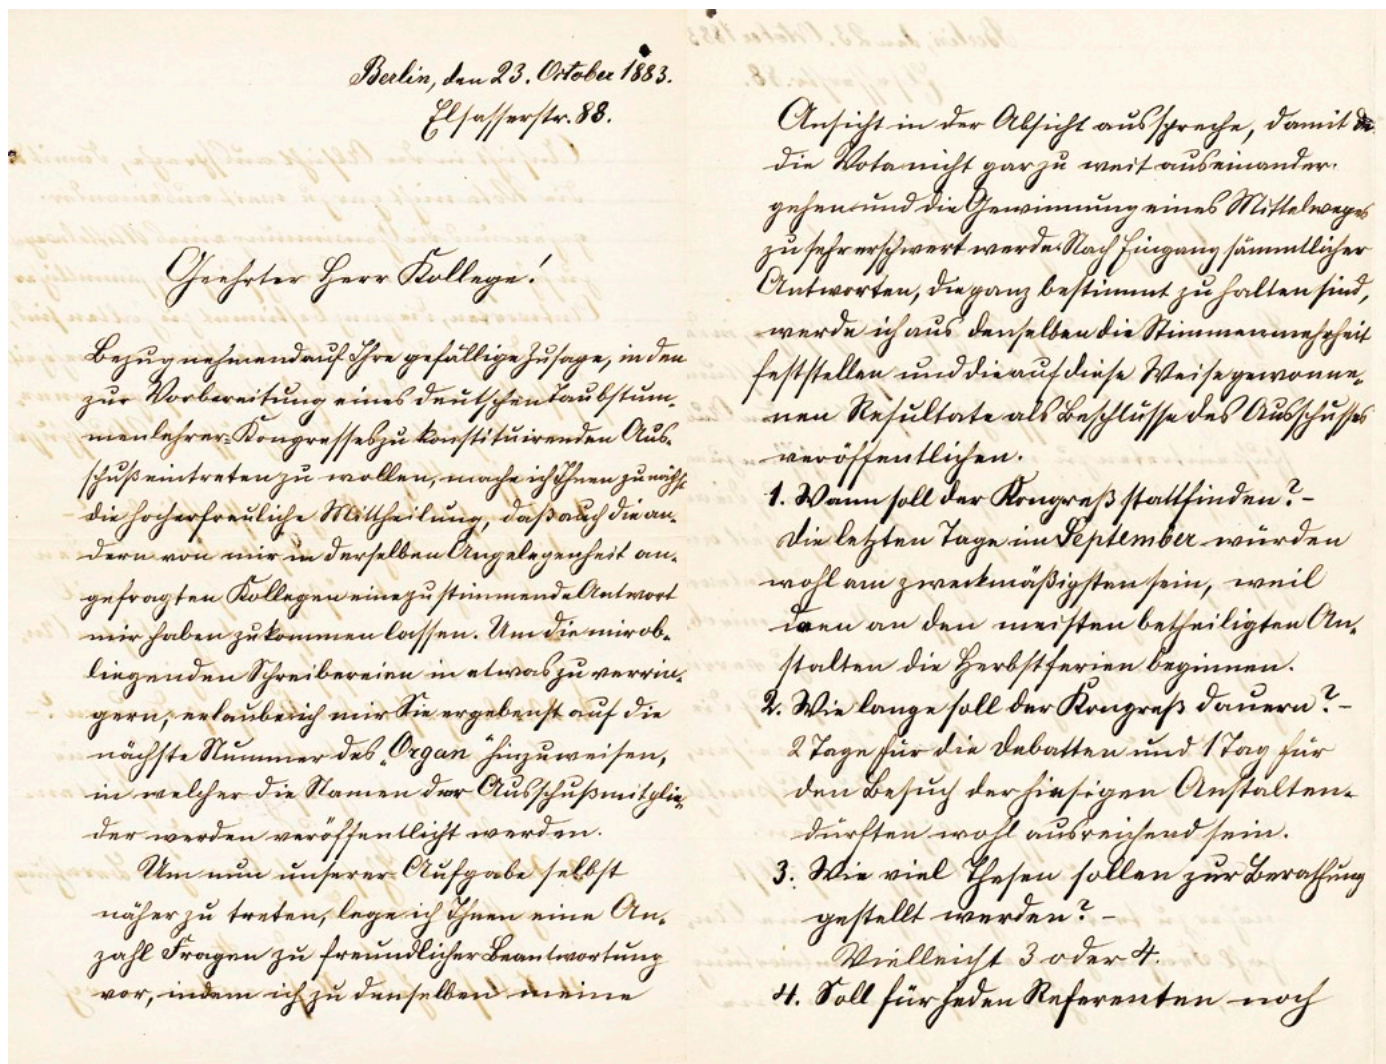 Berlin, den 23. October 1883.
Elsasserstr. 88.
Geehrter Herr Kollege!
Bezug nehmend auf Ihre gefällige Zusage, in den
zur Vorbereitung eines deutschen Taubstum-
menlehrer-Kongresses zu konstituirenden Aus-
schuß eintreten zu wollen, mache ich Ihnen zunächst
die hocherfreuliche Mittheilung, daß auch die an-
dern von mir in derselben Angelegenheit an-
gefragten Kollegen eine zustimmende Antwort
mir haben zukommen lassen. Um die mir ob-
liegenden Schreibereien in etwas zu verrin-
gern, erlaube ich mir Sie ergebenst auf die
nächste Nummer des „Organ“ hinzuweisen,
in welcher die Namen der Ausschußmitglie-
der werden veröffentlicht werden.
Um nun unserer Aufgabe selbst
näher zu treten, lege ich Ihnen eine An-
zahl Fragen zu freundlicher Beantwortung
vor, indem ich zu denselben meine
Ansicht in der Absicht ausspreche, damit
die Vota nicht gar zu weit auseinander-
gehen und die Gewinnung eines Mittelweges
zu sehr erschwert werde. Nach Eingang sämmtlicher
Antworten, die ganz bestimmt zu halten sind,
werde ich aus denselben die Stimmenmehrheit
feststellen und die auf diese Weise gewonne-
nen Resultate als Beschlüsse des Ausschusses
veröffentlichen.
1. Wann soll der Kongreß stattfinden? -
Die letzten Tage im September würden
wohl am zweckmäßigsten sein, weil
an den meisten betheiligten An-
stalten die Herbstferien beginnen.
2. Wie lange soll der Kongreß dauern? -
2 Tage für die Debatten und 1 Tag für
den Besuch der hiesigen Anstalten
dürften wohl ausreichend sein.
3. Wie viel Thesen sollen zur Berathung
gestellt werden? -
Vielleicht 3 oder 4.
4. Soll für jeden Referenten noch